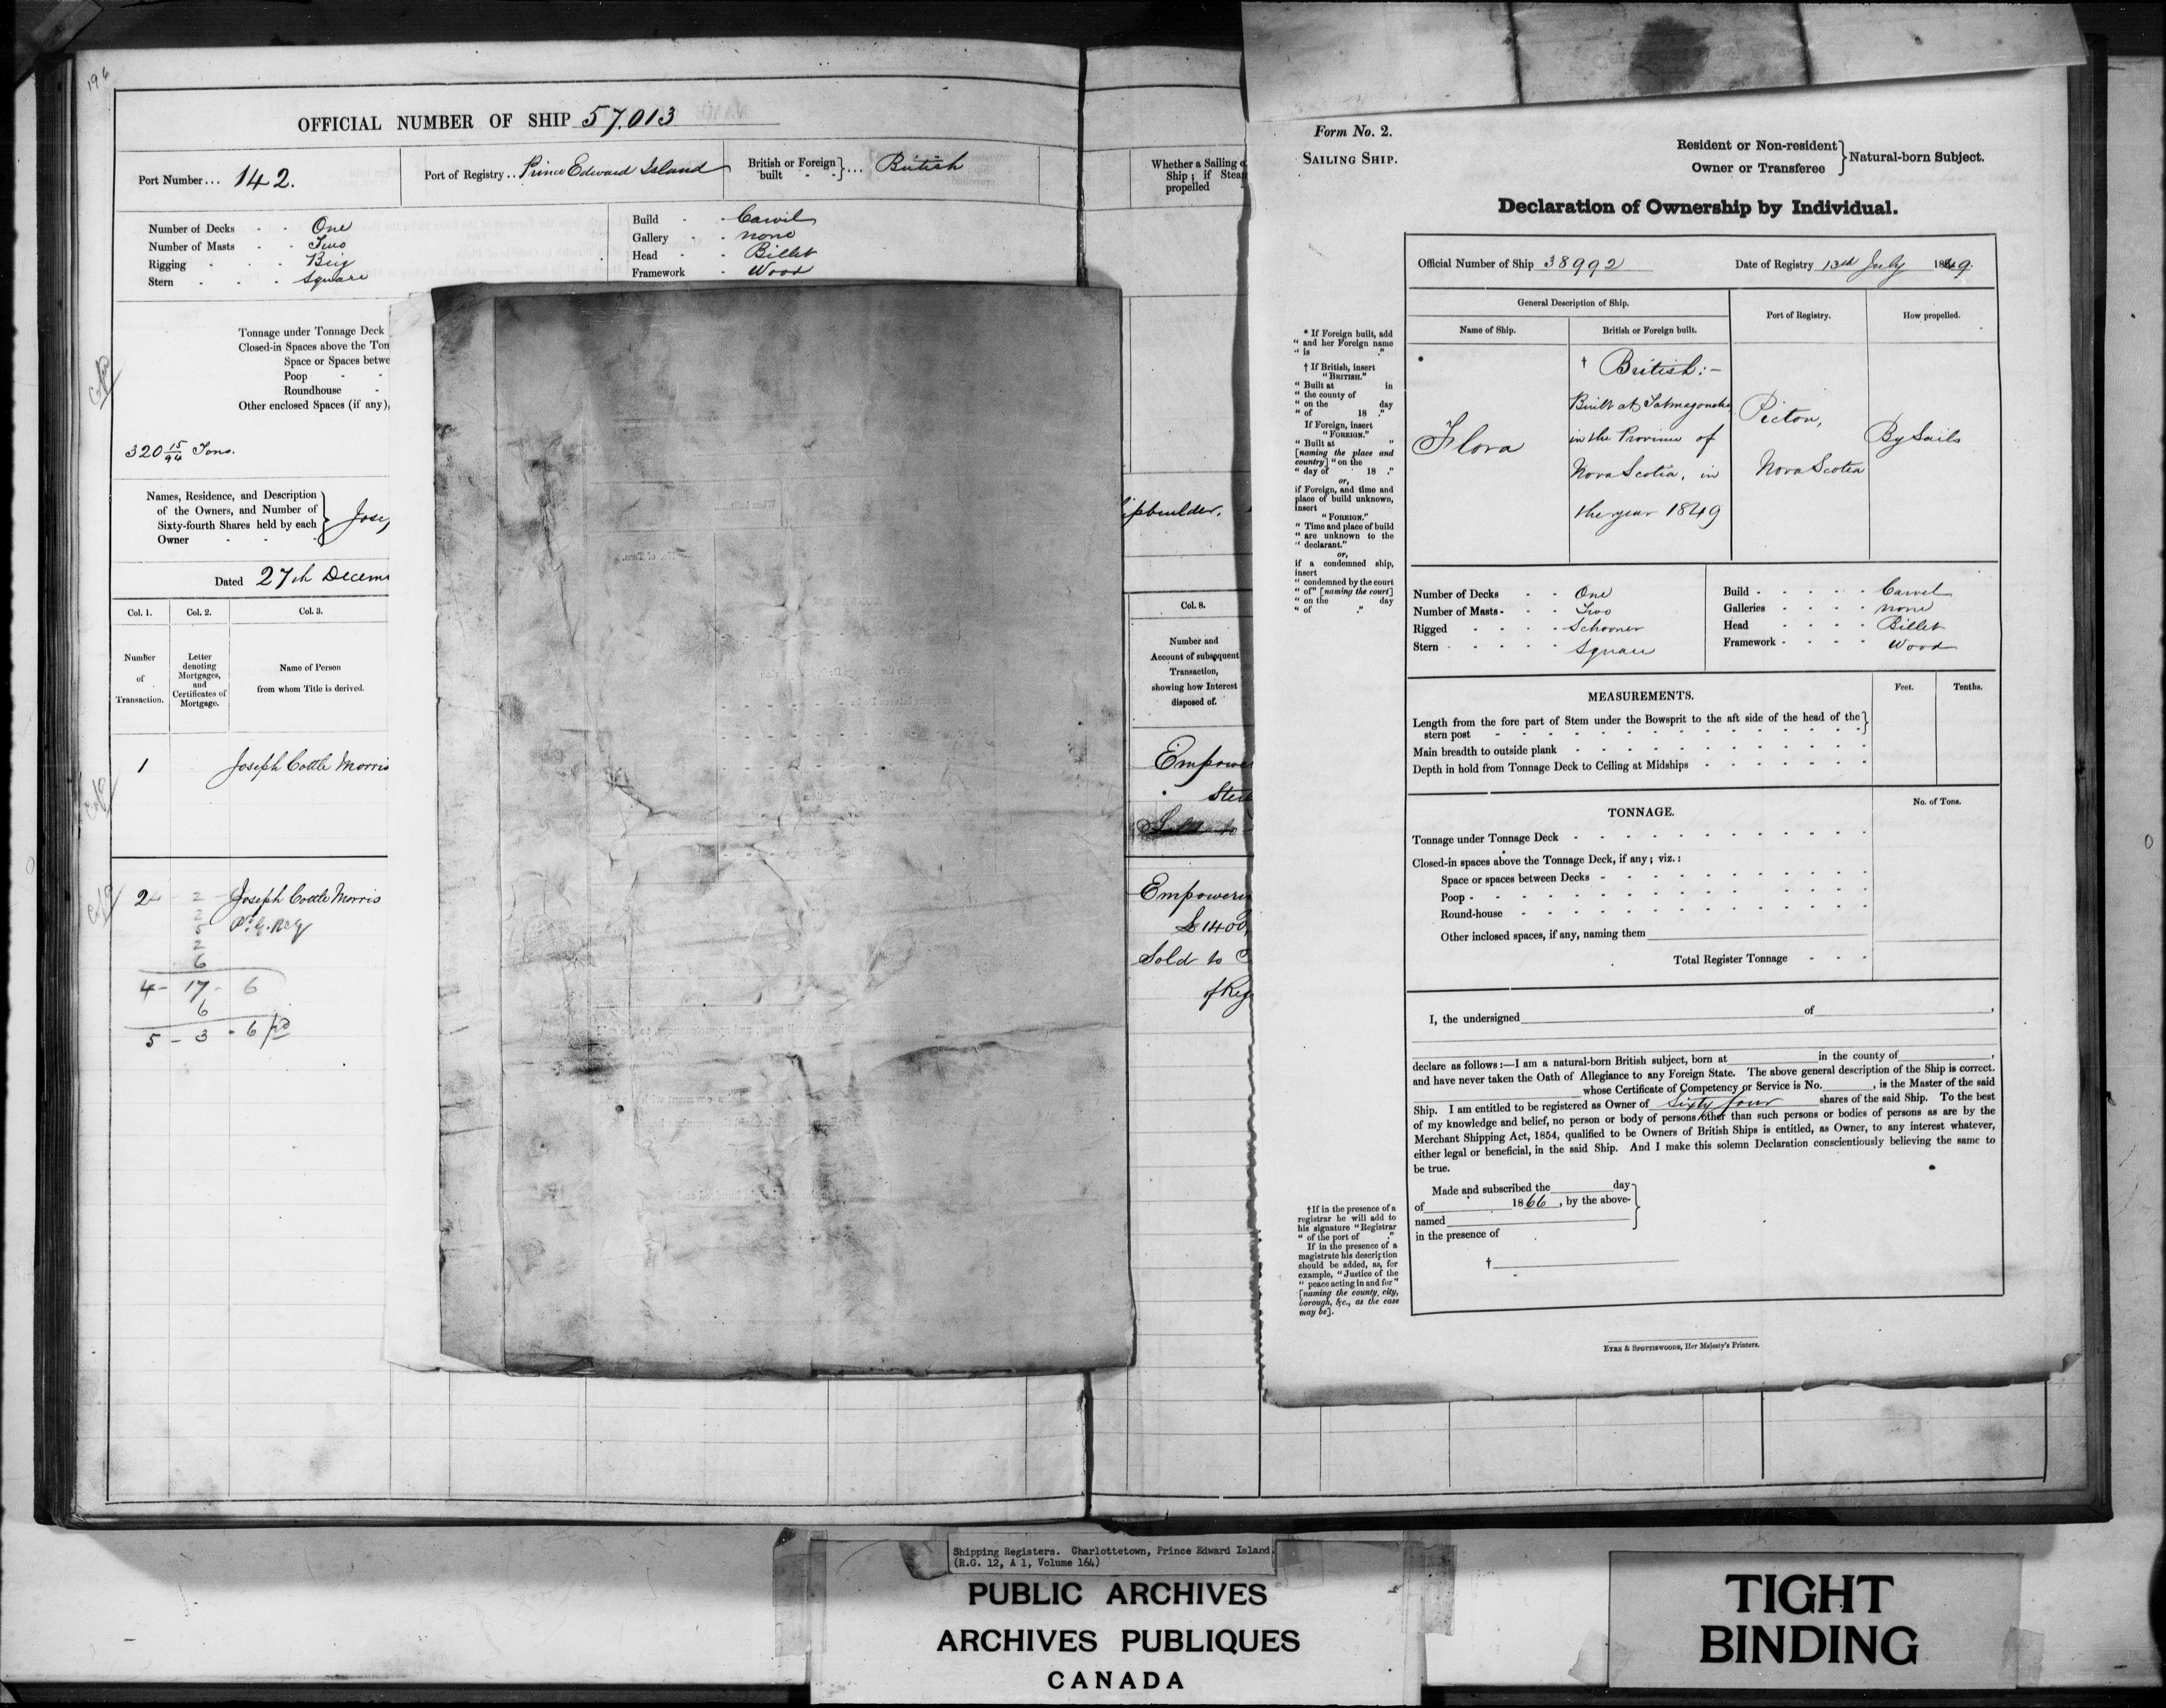 196
OFFICIAL NUMBER OF SHIP 57,013
Port Number ... 142.
Port of Registry .. Prince Edward Island
British or Foreign built } ... British
Number of Decks - - One
Number of Masts - - Two
Rigging - - - Brig
Stern - - - Square
Build - - Carvil
Gallery - - none
Head - - Billet
Framework - Wood
Tonnage under Tonnage Deck
Closed-in Spaces above the Ton
Space or Spaces betwe
Poop - -
Roundhouse -
Other enclosed Spaces (if any),
320 15/94 Tons.
Names, Residence, and Description
of the Owners, and Number of
Sixty-fourth Shares held by each
Owner - - -
Jose
Dated 27th Decem
Col. 1. Col. 2. Col. 3.
Number of Transaction.
Letter denoting Mortgages, and Certificates of Mortgage.
Name of Person
from whom Title is derived.
1 Joseph Cottle Morris
2 Joseph Cottle Morris
2
2
5
2
6
4 - 17 - 6
6
5 - 3 - 6 pd
Whether a Sailing o
Ship; if Stea
propelled
ipbuilder.
Col. 8.
Number and
Account of subsequent
Transaction,
showing how Interest
disposed of.
Empowe
Ster
Sold to
Empoweri
£1400,
Sold to
of Reg
Form No. 2.
SAILING SHIP.
Resident or Non-resident
Owner or Transferee } Natural-born Subject.
Declaration of Ownership by Individual.
Official Number of Ship 38992
Date of Registry 13th July 1849.
General Description of Ship.
Name of Ship.
British or Foreign built.
Port of Registry.
How propelled.
* Flora
† British:-
Built at Tatmagouche
in the Province of
Nova Scotia, in
the year 1849
Picton,
Nova Scotia
By Sails
* If Foreign built, add
" and her Foreign name
" is ."
† If British, insert
"BRITISH."
" Built at in
" the county of
" on the day
" of 18 ."
If Foreign, insert
"FOREIGN."
" Built at "
[naming the place and
country] "on the
" day of 18 ."
or,
if Foreign, and time and
place of build unknown,
insert
"FOREIGN."
" Time and place of build
" are unknown to the
" declarant."
or,
if a condemned ship,
insert
" condemned by the court
" of" [naming the court]
" on the day
" of ."
Number of Decks - - One
Number of Masts - - Two
Rigged - - - - Schooner
Stern - - - - - Square
Build - - - - - Carvel
Galleries - - - - none
Head - - - - Billet
Framework - - - - Wood
MEASUREMENTS.
Feet. Tenths.
Length from the fore part of Stem under the Bowsprit to the aft side of the head of the
stern post
Main breadth to outside plank
Depth in hold from Tonnage Deck to Ceiling at Midships
TONNAGE.
No. of Tons.
Tonnage under Tonnage Deck
Closed-in spaces above the Tonnage Deck, if any; viz.:
Space or spaces between Decks
Poop
Round-house
Other inclosed spaces, if any, naming them
Total Register Tonnage
I, the undersigned of ,
declare as follows:—I am a natural-born British subject, born at in the county of ,
and have never taken the Oath of Allegiance to any Foreign State. The above general description of the Ship is correct.
whose Certificate of Competency or Service is No. , is the Master of the said
Ship. I am entitled to be registered as Owner of Sixty four shares of the said Ship. To the best
of my knowledge and belief, no person or body of persons other than such persons or bodies of persons as are by the
Merchant Shipping Act, 1854, qualified to be Owners of British Ships is entitled, as Owner, to any interest whatever,
either legal or beneficial, in the said Ship. And I make this solemn Declaration conscientiously believing the same to
be true.
Made and subscribed the day
of 1866, by the above-
named
in the presence of
†
†If in the presence of a
registrar he will add to
his signature "Registrar
" of the port of ."
If in the presence of a
magistrate his description
should be added, as, for
example, "Justice of the
" peace acting in and for"
[naming the county, city,
borough, &c., as the case
may be].
EYRE & SPOTTISWOODE, Her Majesty's Printers.
Shipping Registers. Charlottetown, Prince Edward Island.
(R.G. 12, A 1, Volume 164)
PUBLIC ARCHIVES
ARCHIVES PUBLIQUES
CANADA
TIGHT
BINDING